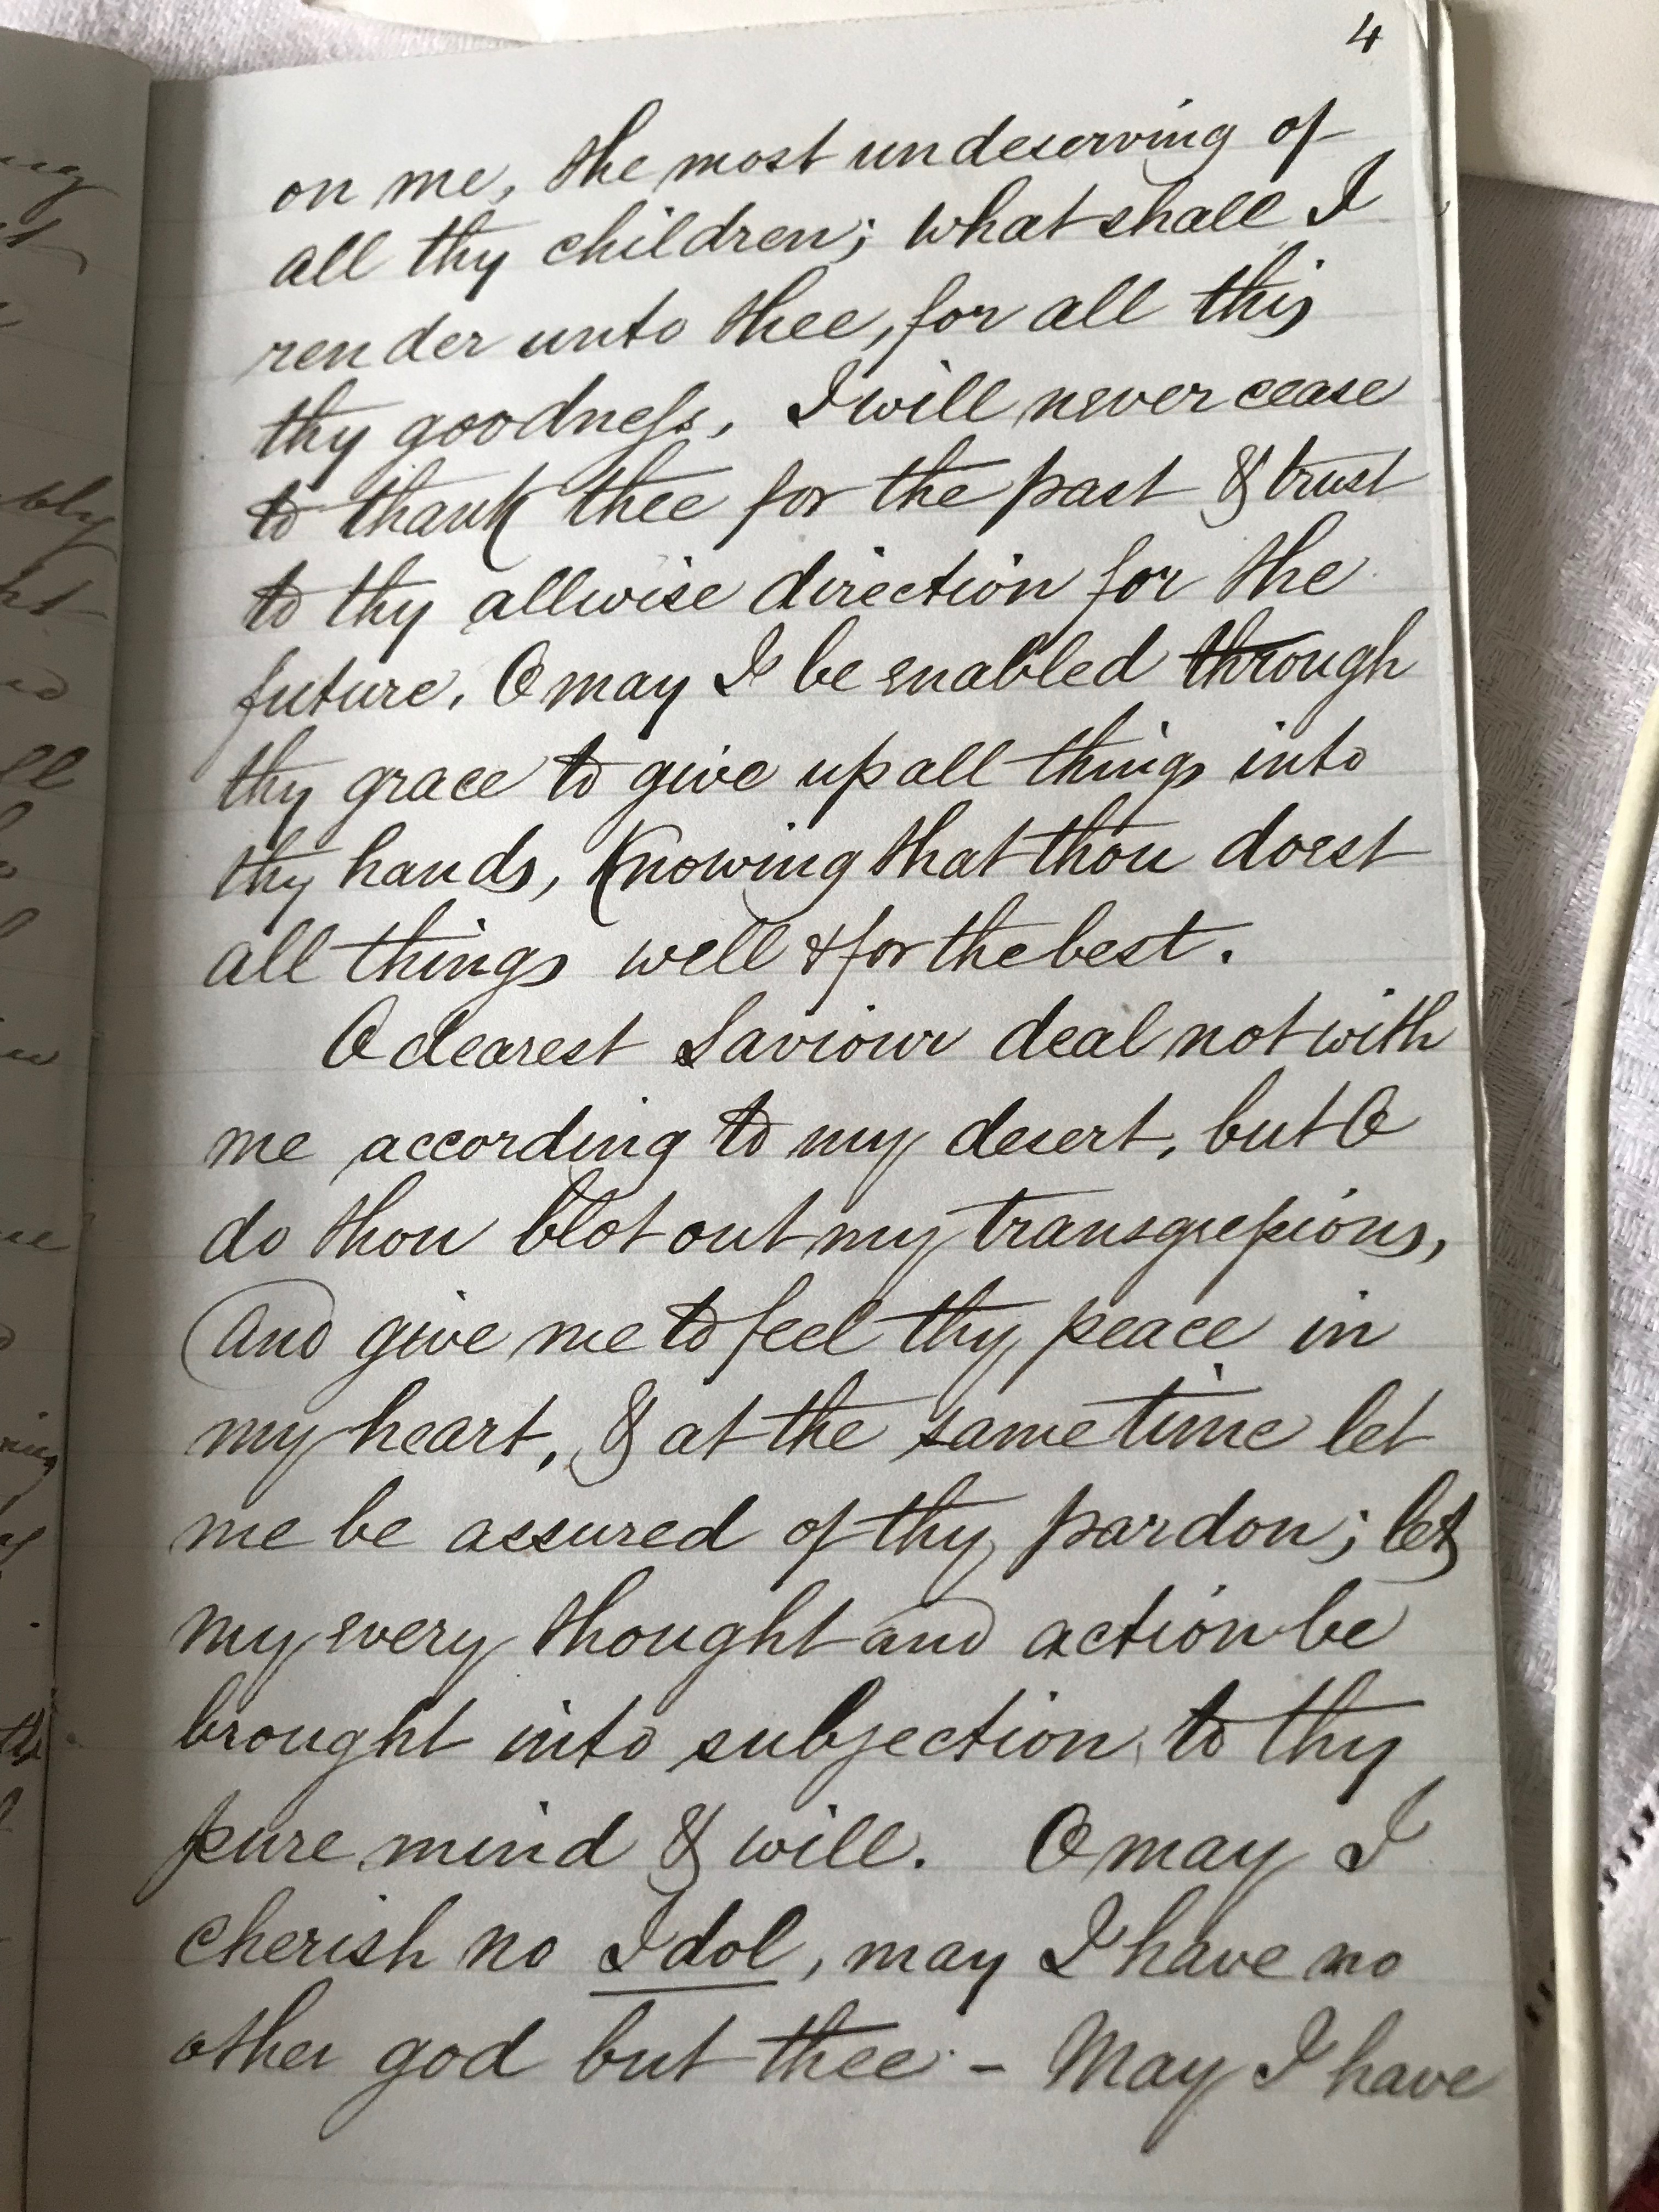 4
on me, the most undeserving of
all thy children; what shall I
render unto thee, for all this
thy goodness, I will never cease
to thank thee for the past & trust
to thy allwise direction for the
future. O may I be enabled through
thy grace to give up all things into
thy hands, Knowing that thou doest
all things well & for the best.
O dearest Saviour deal not with
me according to my desert, but O
do thou blot out my transgressions,
And give me to feel thy peace in
my heart, & at the same time let
me be assured of thy pardon; let
my every thought and action be
brought into subjection to thy
pure mind & will. O may I
cherish no Idol, may I have no
other god but thee - May I have